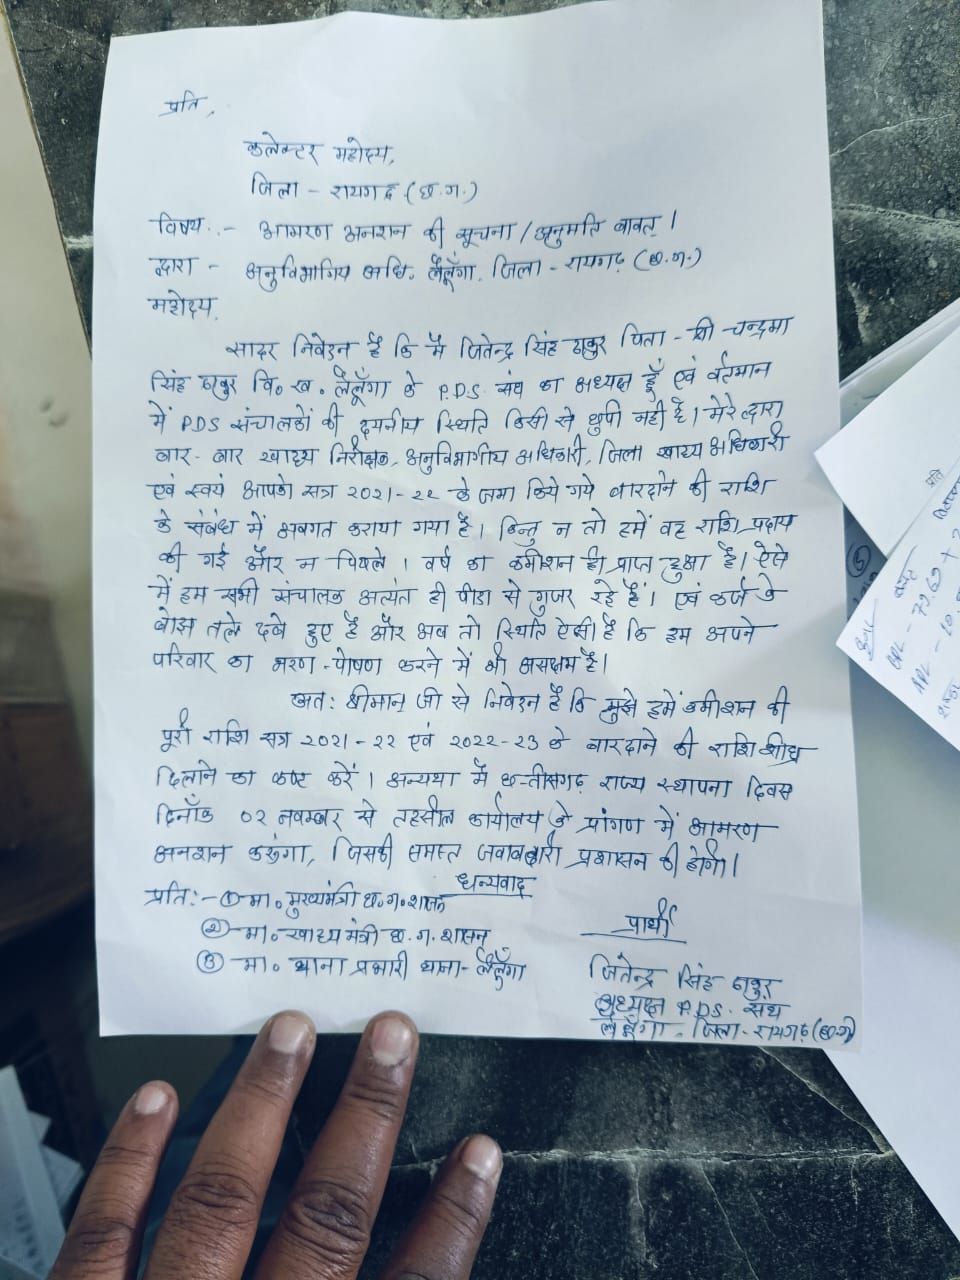 प्रति,
कलेक्टर महोदय,
जिला - रायगढ़ (छ.ग.)
विषय :- आमरण अनशन की सूचना / अनुमति बावत् ।
द्वारा - अनुविभागिय अधि. लैलूँगा. जिला - रायगढ़ (छ.ग.)
महोदय,
सादर निवेदन है कि मैं जितेन्द्र सिंह ठाकुर पिता - श्री चन्द्रमा
सिंह ठाकुर वि० ख. लैलूँगा के P.D.S. संघ का अध्यक्ष हूँ एवं वर्तमान
में PDS संचालकों की दयनीय स्थिति किसी से छुपी नही है। मेरे द्वारा
बार - बार खाद्य निरीक्षक, अनुविभागीय अधिकारी, जिला खाद्य अधिकारी
एवं स्वयं आपको सत्र 2021-22 के जमा किये गये बारदाने की राशि
के संबंध में अवगत कराया गया है। किन्तु न तो हमें वह राशि प्रदाय
की गई और न पिछले 1 वर्ष का कमीशन ही प्राप्त हुआ है। ऐसे
में हम सभी संचालक अत्यंत ही पीडा से गुजर रहे हैं। एवं कर्ज के
बोझ तले दबे हुए है और अब तो स्थिति ऐसी है कि हम अपने
परिवार का भरण - पोषण करने में भी असक्षम है।
अतः श्रीमान् जी से निवेदन है कि मुझे हमें कमीशन की
पूरी राशि सत्र 2021-22 एवं 2022-23 के बारदाने की राशि शीघ्र
दिलाने का कष्ट करें । अन्यथा में छत्तीसगढ़ राज्य स्थापना दिवस
दिनाँक 02 नवम्बर से तहसील कार्यालय के प्रांगण में आमरण
अनशन करुंगा, जिसकी समस्त जवाबदारी प्रशासन की होगी।
धन्यवाद
प्रति:- ① मा. मुख्यमंत्री छ.ग. शासन
② मा. खाद्य मंत्री छ.ग. शासन
③ मा. थाना प्रभारी थाना - लैलूँगा
प्रार्थी
जितेन्द्र सिंह ठाकुर
अध्यक्ष P.D.S. संघ
लैलूँगा - जिला - रायगढ़ (छ.ग)